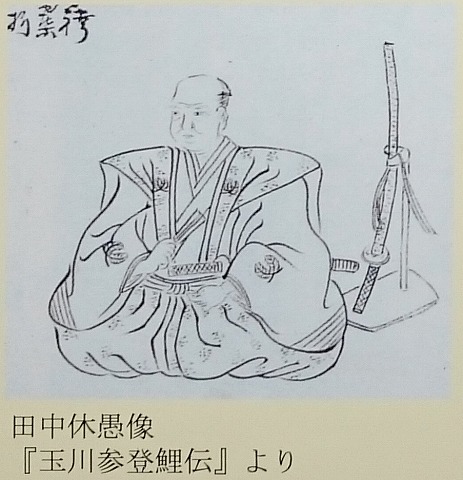 田中休愚像
『玉川参登鯉伝』より